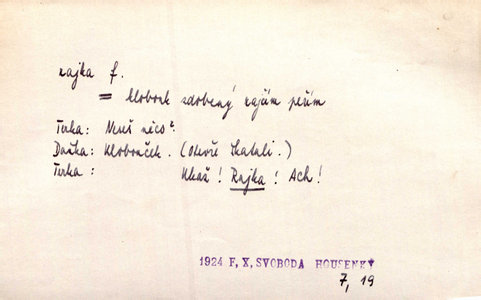 rajka f.
= klobouk zdobený rajčím peřím
Terka: Neseš něco?
Dačka: Klobouček. (Otevře škatuli.)
Terka: Ukaž! Rajka! Ach!
1924 F. X. SVOBODA HOUSENKY
7, 19